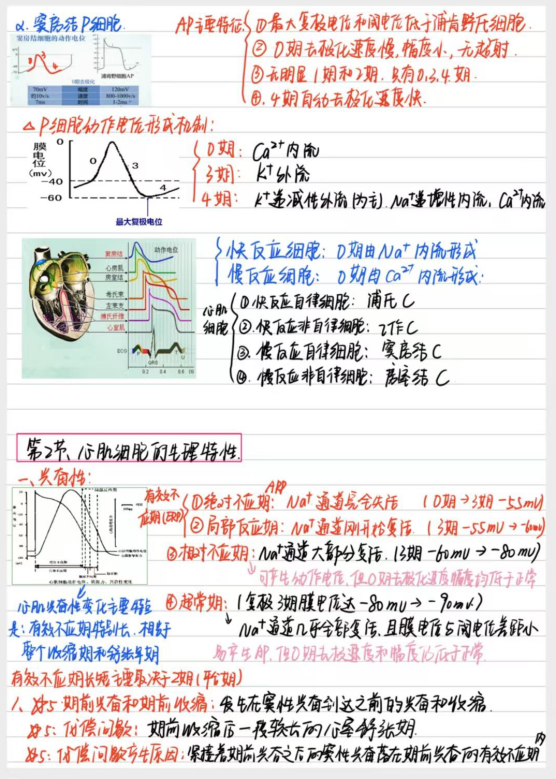 α. 窦房结P细胞
窦房结细胞的动作电位
浦肯野细胞AP
0期去极化
70mV 幅度 120mV
约10v/s 速度 800-1000v/s
7ms 时间 1-2ms
AP主要特征
① 最大复极电位和阈电位低于浦肯野氏细胞.
② 0期去极化速度慢, 幅度小, 无超射.
③ 无明显1期和2期. 只有0.3.4期.
④. 4期自动去极化速度快.
△ P细胞动作电位形成机制:
膜电位(mv)
0
-40
-60
0 3 4
最大复极电位
0期: Ca²⁺内流
3期: K⁺外流
4期: K⁺递减性外流(为主). Na⁺递增性内流, Ca²⁺内流
动作电位
窦房结
心房肌
房室结
希氏束
左束支
浦氏纤维
心室肌
ECG
P QRS T U
0.2 0.4 0.6
快反应细胞: 0期由Na⁺内流形成
慢反应细胞: 0期由Ca²⁺内流形成.
心肌细胞
① 快反应自律细胞: 浦氏C
②. 快反应非自律细胞: 工作C
③. 慢反应自律细胞: 窦房结C
④. 慢反应非自律细胞: 房室结C
第2节、心肌细胞的生理特性.
一、兴奋性:
有效不应期(ERP)
ARP
① 绝对不应期: Na⁺通道完全失活 (0期→3期-55mV)
② 局部反应期: Na⁺通道刚开始复活. (3期-55mV→-60mV)
③ 相对不应期: Na⁺通道大部分复活. (3期-60mV→-80mV)
可产生动作电位, 但0期去极化速度幅度均低于正常
④ 超常期: (复极3期膜电位达-80mV→-90mV)
Na⁺通道几乎全部复活, 且膜电位与阈电位差距小
易产生AP, 但0期去极速度和幅度仍低于正常.
心肌兴奋性变化主要特点
是: 有效不应期特别长, 相当于
整个收缩期和舒张早期
有效不应期长短主要取决于2期(平台期)
1、期前兴奋和期前收缩: 发生在窦性兴奋到达之前的兴奋和收缩.
代偿间歇: 期前收缩后一段较长的心室舒张期.
代偿间歇产生原因: 紧接着期前兴奋之后的窦性兴奋落在期前兴奋的有效不应期内